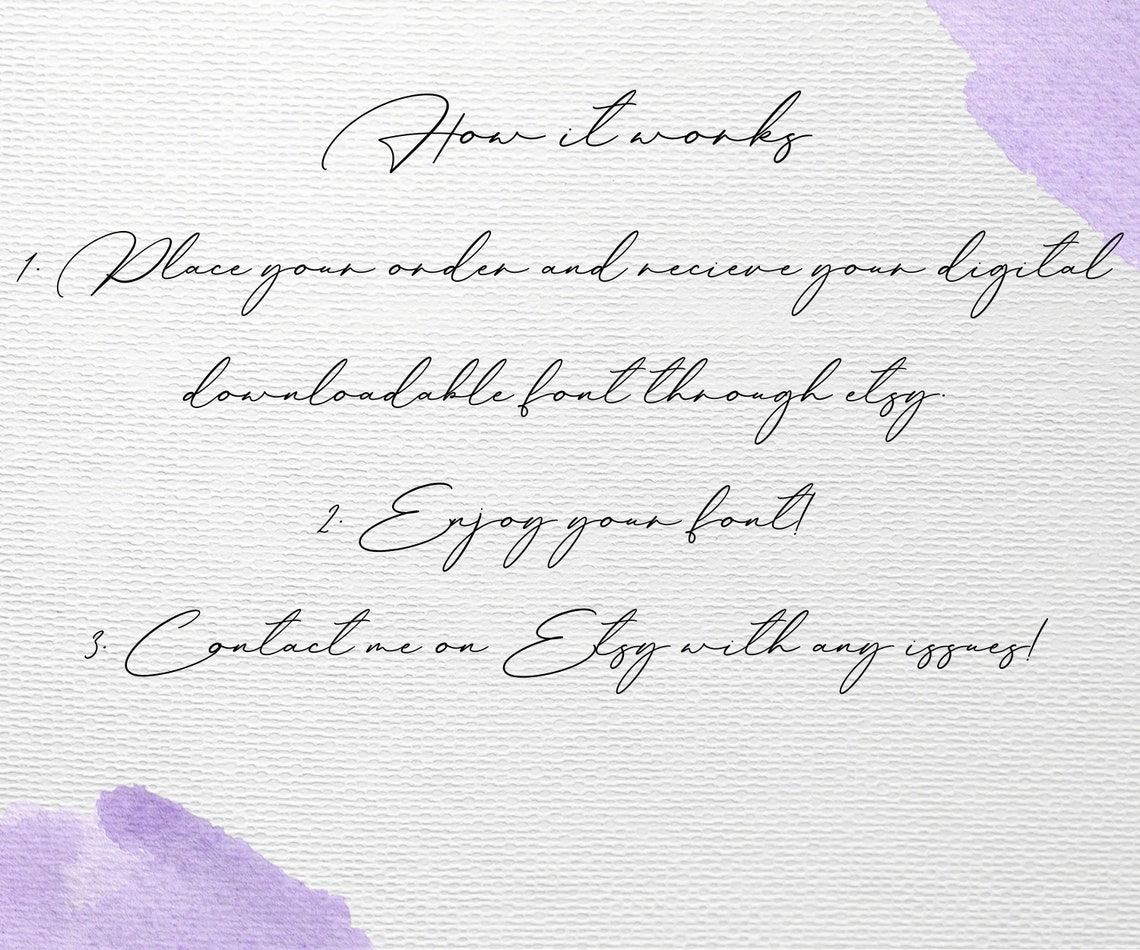 How it works
1. Place your order and recieve your digital
downloadable font through etsy.
2. Enjoy your font!
3. Contact me on Etsy with any issues!